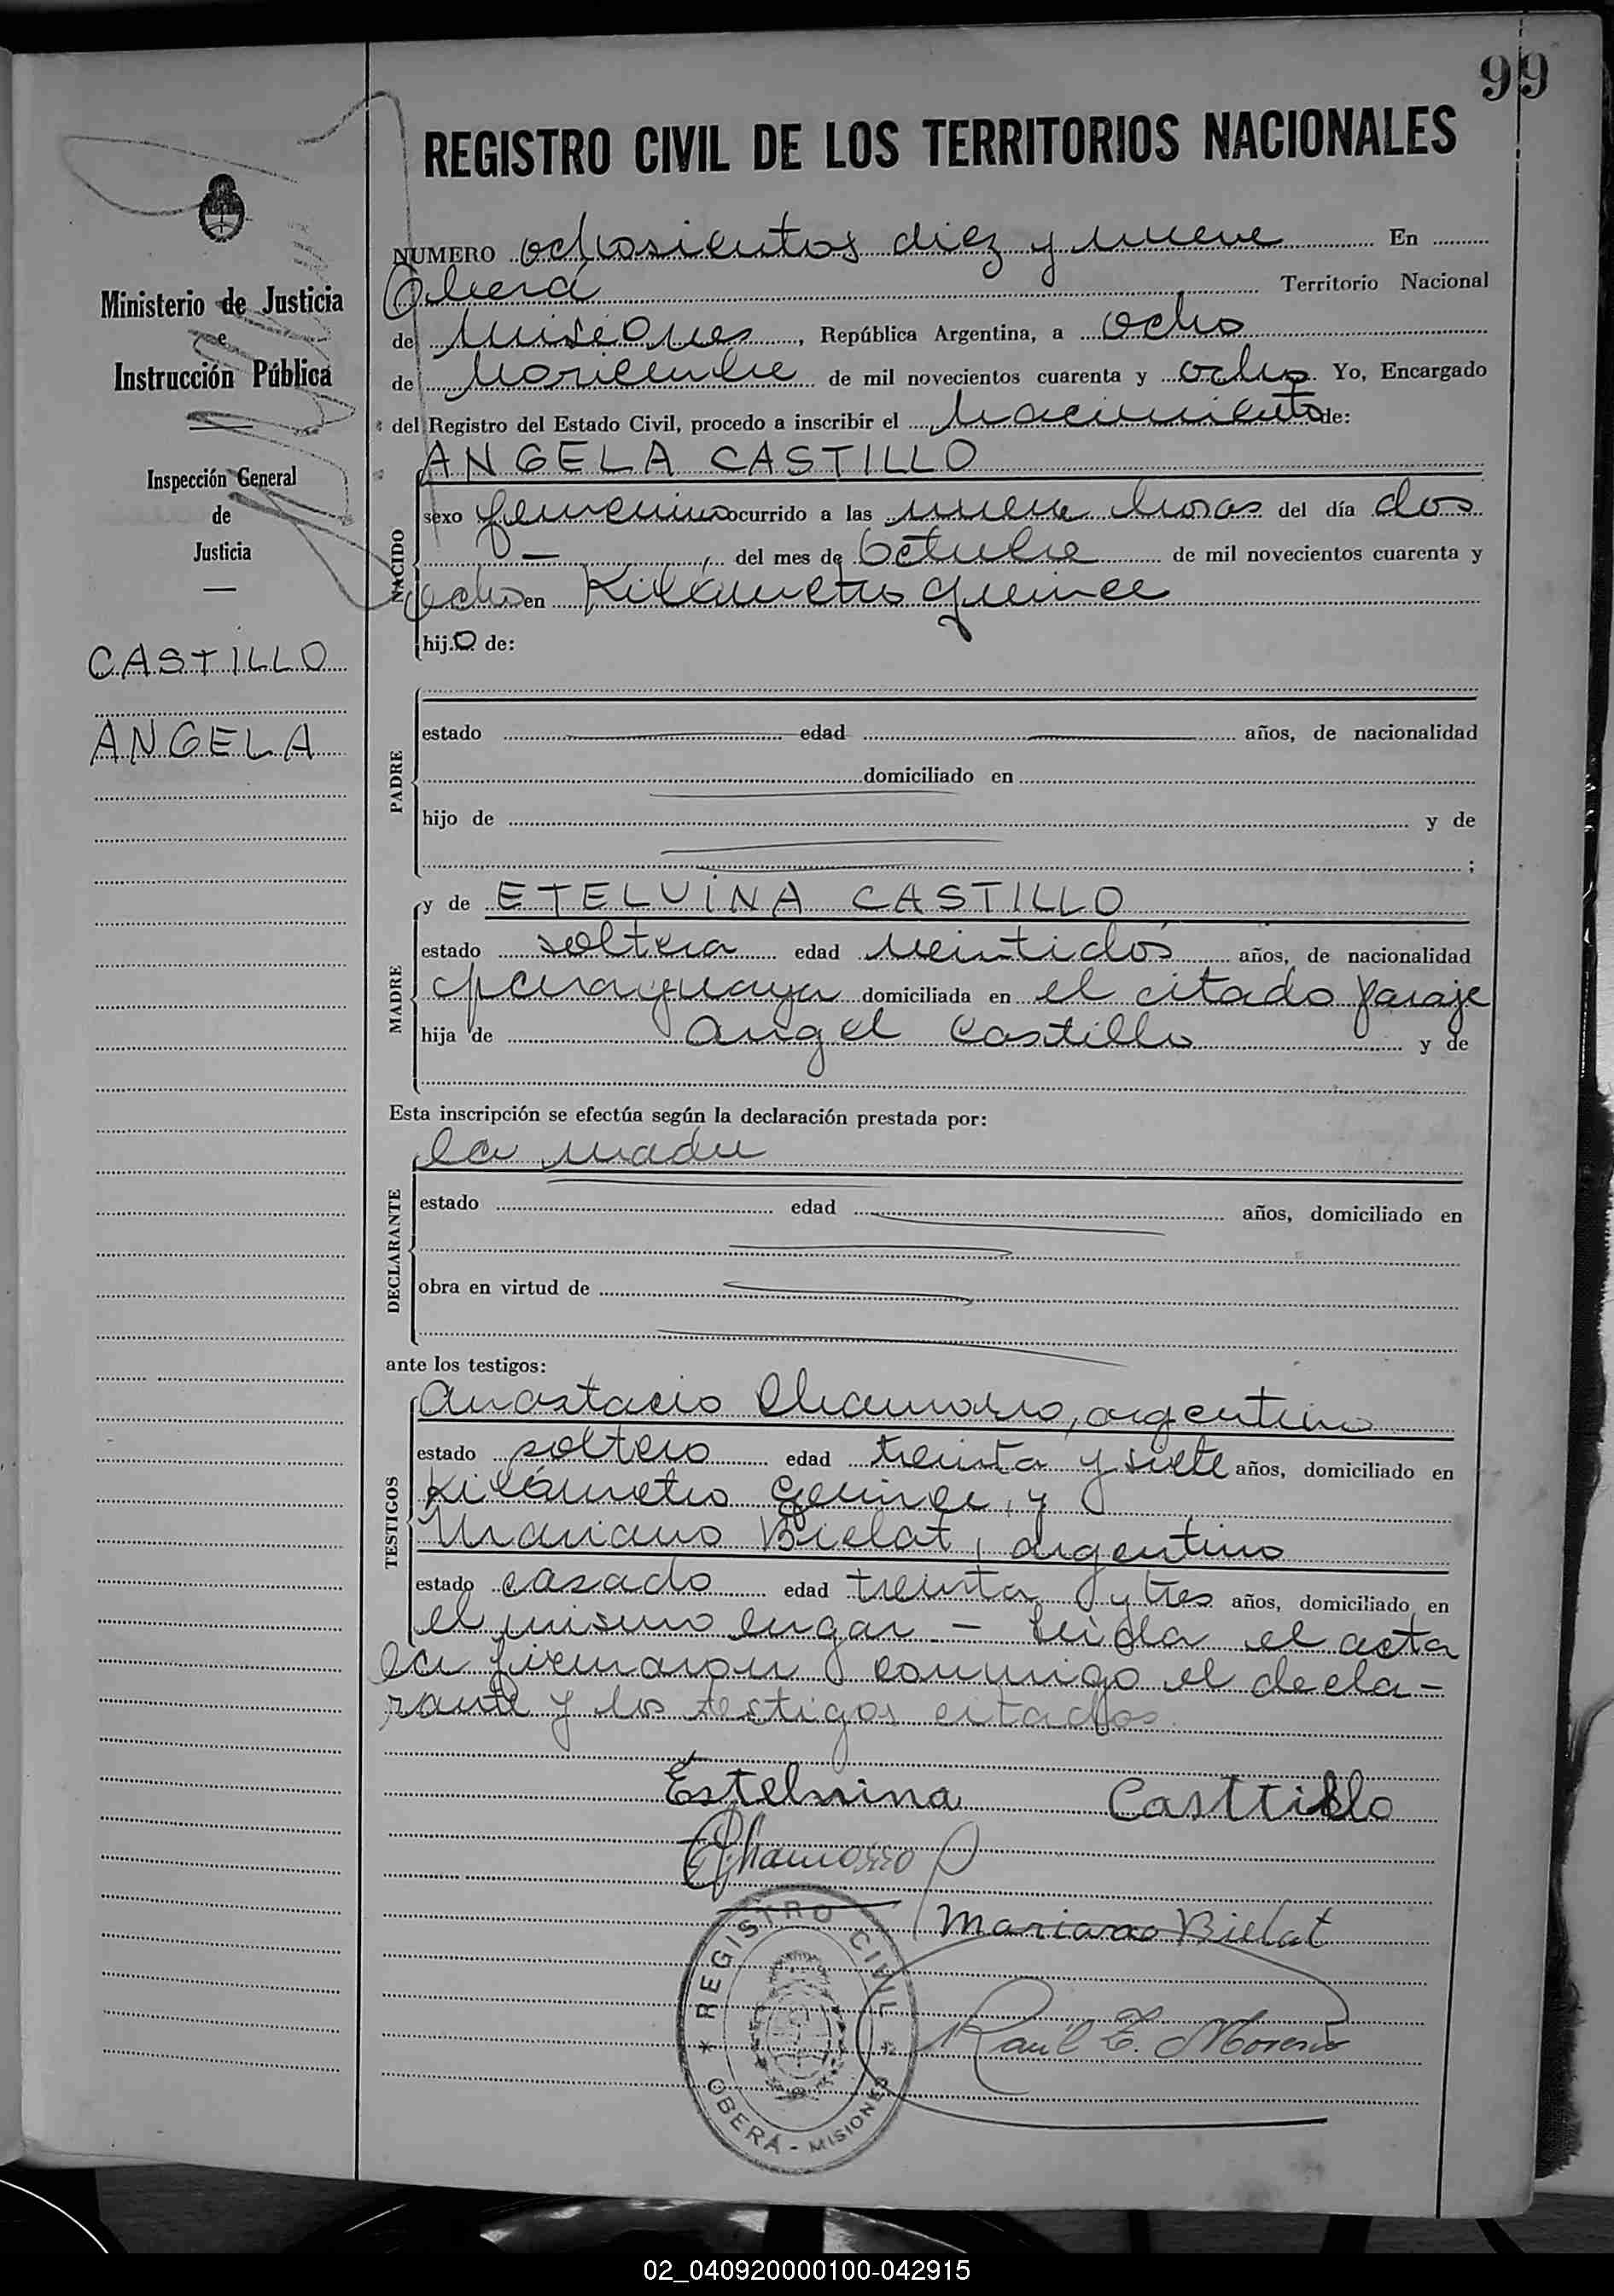 99
REGISTRO CIVIL DE LOS TERRITORIOS NACIONALES
Ministerio de Justicia
e
Instrucción Pública
Inspección General
de
Justicia
CASTILLO
ANGELA
NUMERO ochosientos diez y nueve En
Oberá Territorio Nacional
de Misiones, República Argentina, a ocho
de Noviembre de mil novecientos cuarenta y ocho Yo, Encargado
del Registro del Estado Civil, procedo a inscribir el Nacimiento de:
ANGELA CASTILLO
NACIDO
sexo femenino ocurrido a las nueve horas del día dos
—, del mes de Octubre de mil novecientos cuarenta y
ocho en Kilómetro quince
hijo de:
PADRE
estado edad años, de nacionalidad
domiciliado en
hijo de y de
;
MADRE
y de ETELVINA CASTILLO
estado soltera edad veintidós años, de nacionalidad
paraguaya domiciliada en el citado paraje
hija de Angel Castillo y de
Esta inscripción se efectúa según la declaración prestada por:
la madre
DECLARANTE
estado edad años, domiciliado en
obra en virtud de
ante los testigos:
TESTIGOS
Anastacio Chamorro, argentino
estado soltero edad treinta y siete años, domiciliado en
Kilómetro Quince, y
Mariano Bielat, argentino
estado casado edad treinta y tres años, domiciliado en
el mismo lugar - Leída el acta
la firmaron conmigo el decla-
rante y los testigos citados
Estelvina Casttillo
Chamorro
Mariano Bielat
Raúl T. Moreno
REGISTRO CIVIL
OBERÁ - MISIONES
02_040920000100-042915